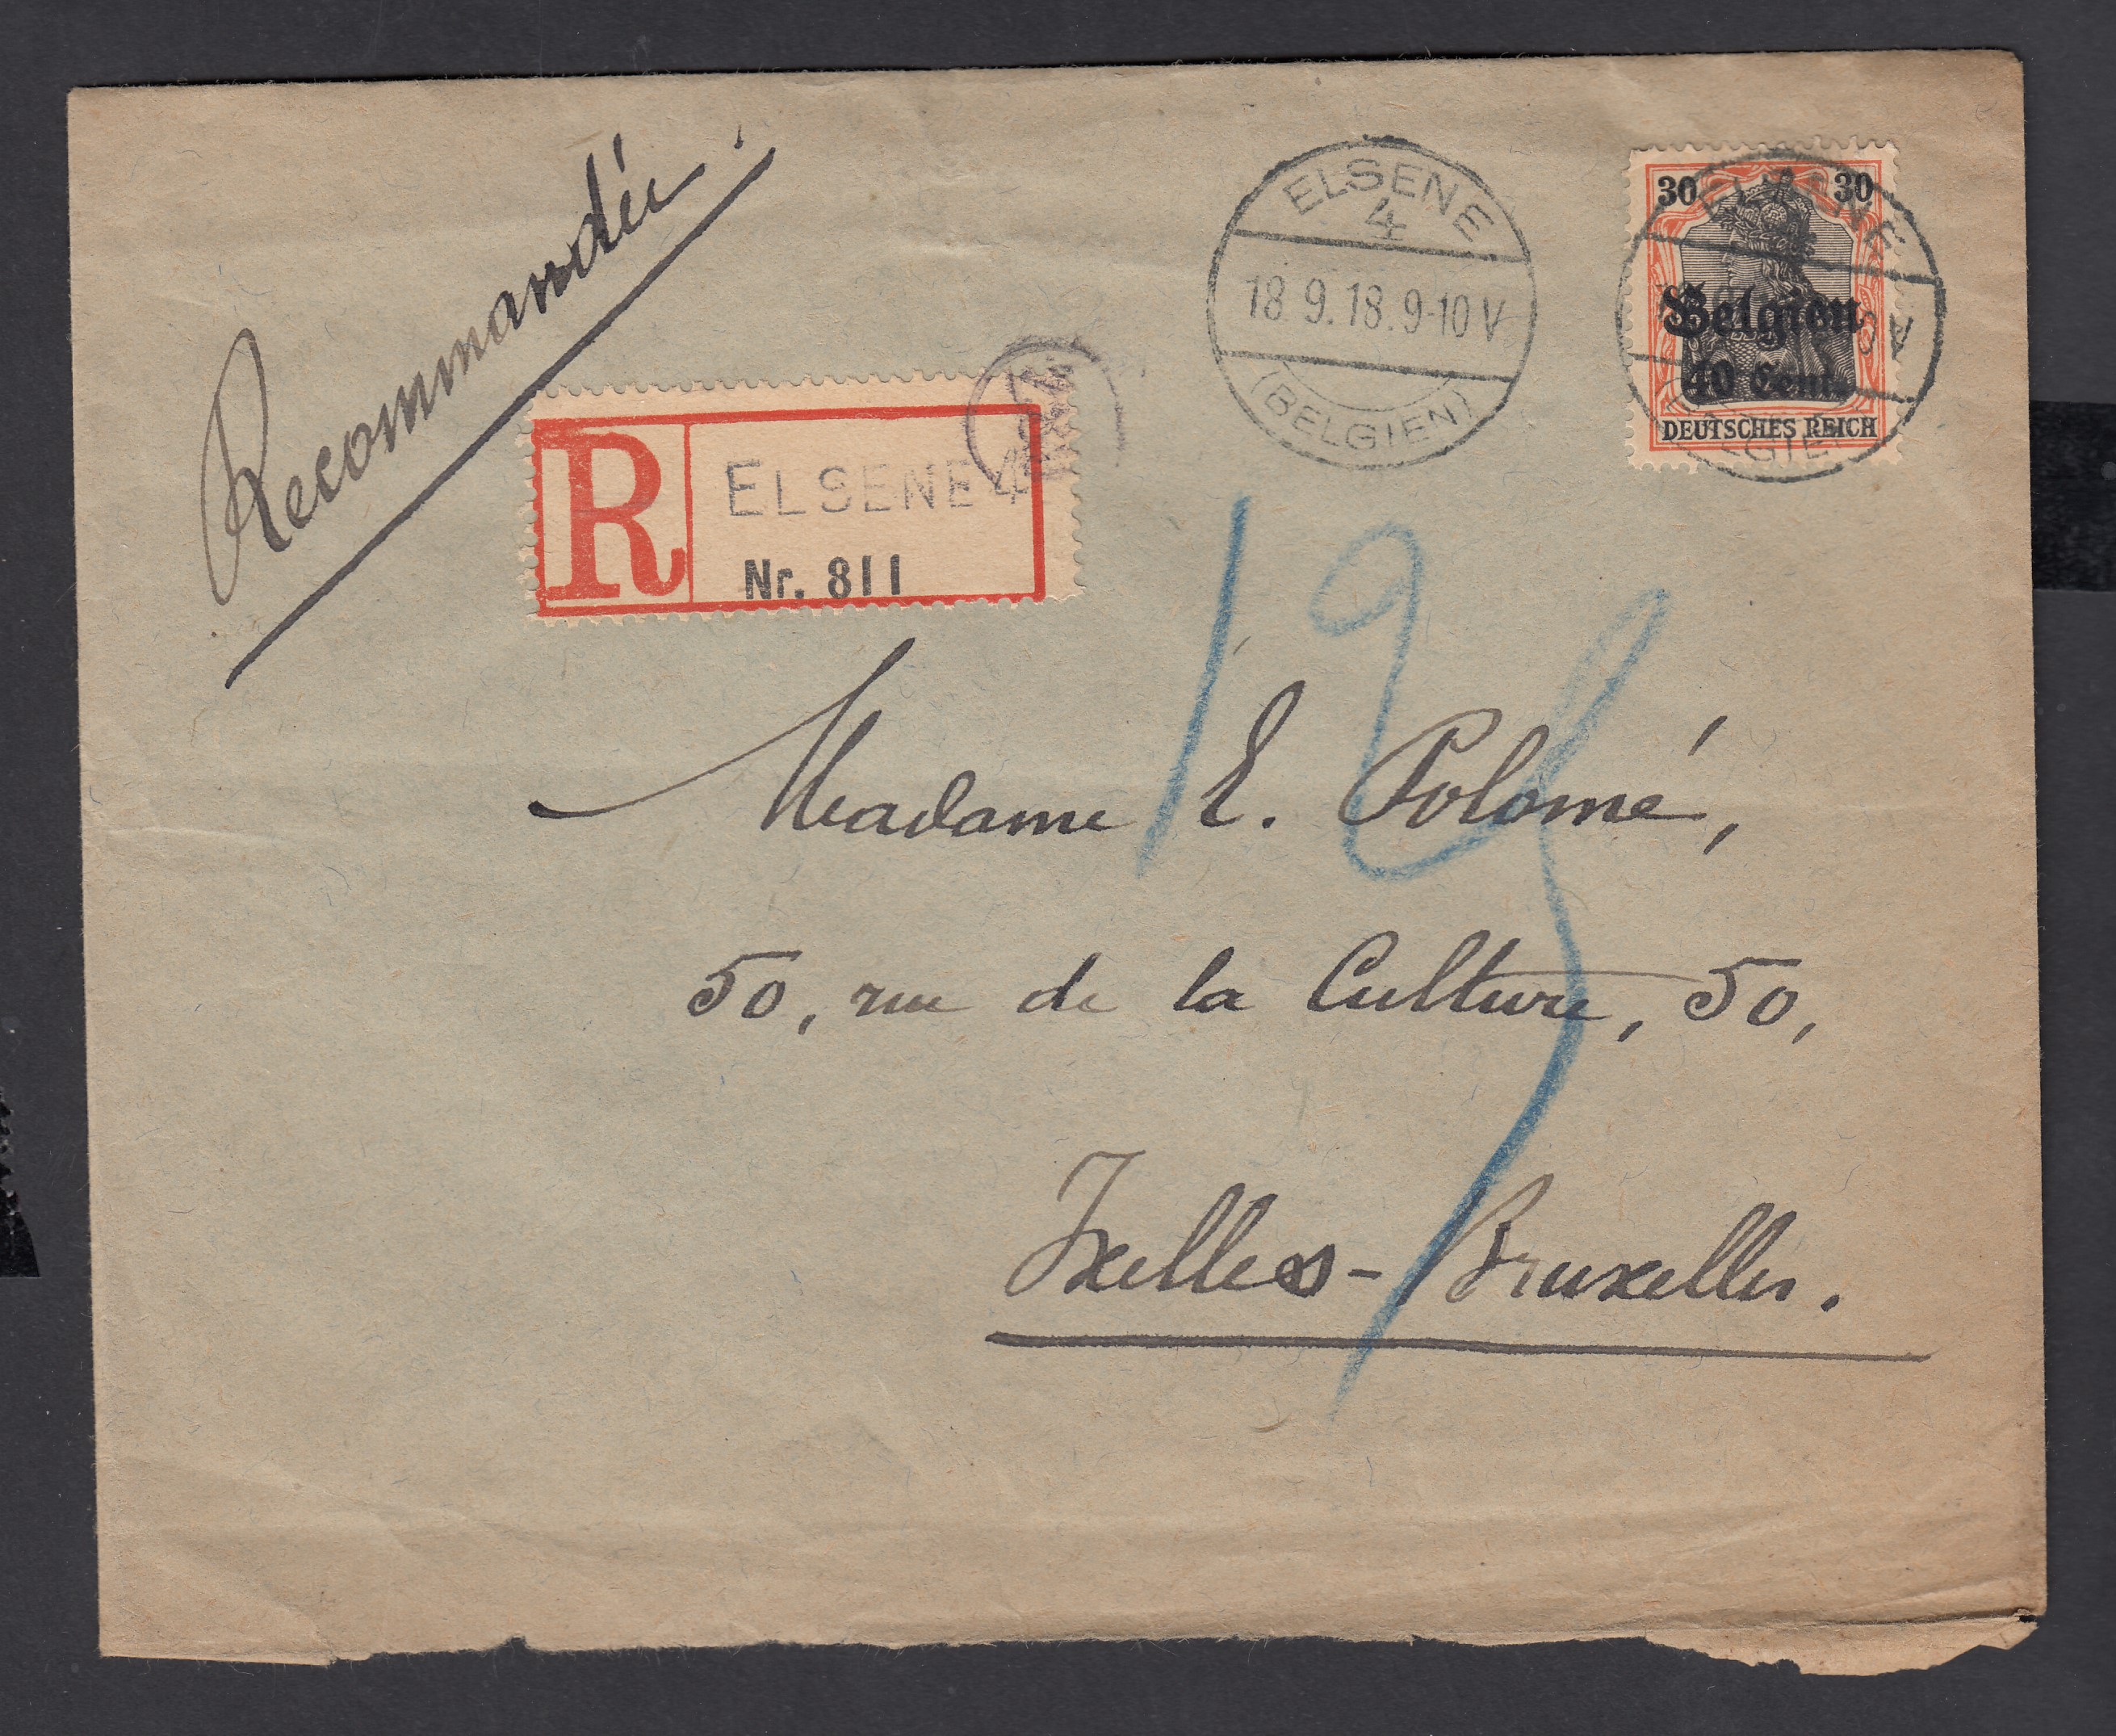 Recommandée.
ELSENE
4
18.9.18.9-10V
(BELGIEN)
30 30
Belgien
40 Cent.
DEUTSCHES REICH
R ELSENE 4
Nr. 811
Madame E. Polomé,
50, rue de la Culture, 50,
Ixelles-Bruxelles.